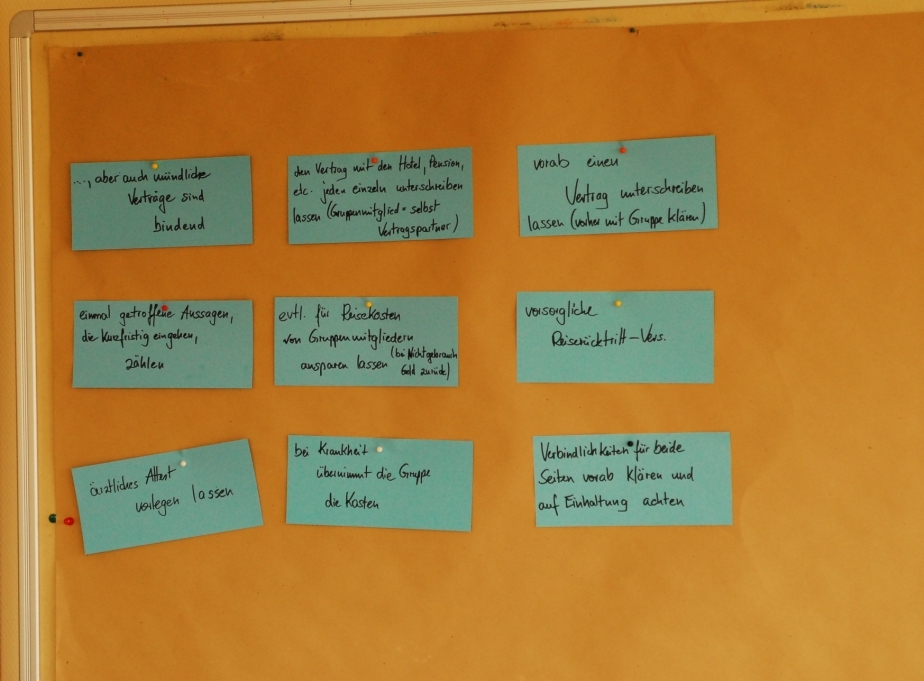 ..., aber auch mündliche
Verträge sind
bindend
den Vertrag mit den Hotel, Pension,
etc. jeden einzeln unterschreiben
lassen (Gruppenmitglied = selbst
Vertragspartner)
vorab einen
Vertrag unterschreiben
lassen (vorher mit Gruppe klären)
einmal getroffene Aussagen,
die kurzfristig eingehen,
zählen
evtl. für Reisekosten
von Gruppenmitgliedern
ansparen lassen (bei Nichtgebrauch
Geld zurück)
vorsorgliche
Reiserücktritt-Vers.
ärztliches Attest
vorlegen lassen
bei Krankheit
übernimmt die Gruppe
die Kosten
Verbindlichkeiten für beide
Seiten vorab klären und
auf Einhaltung achten